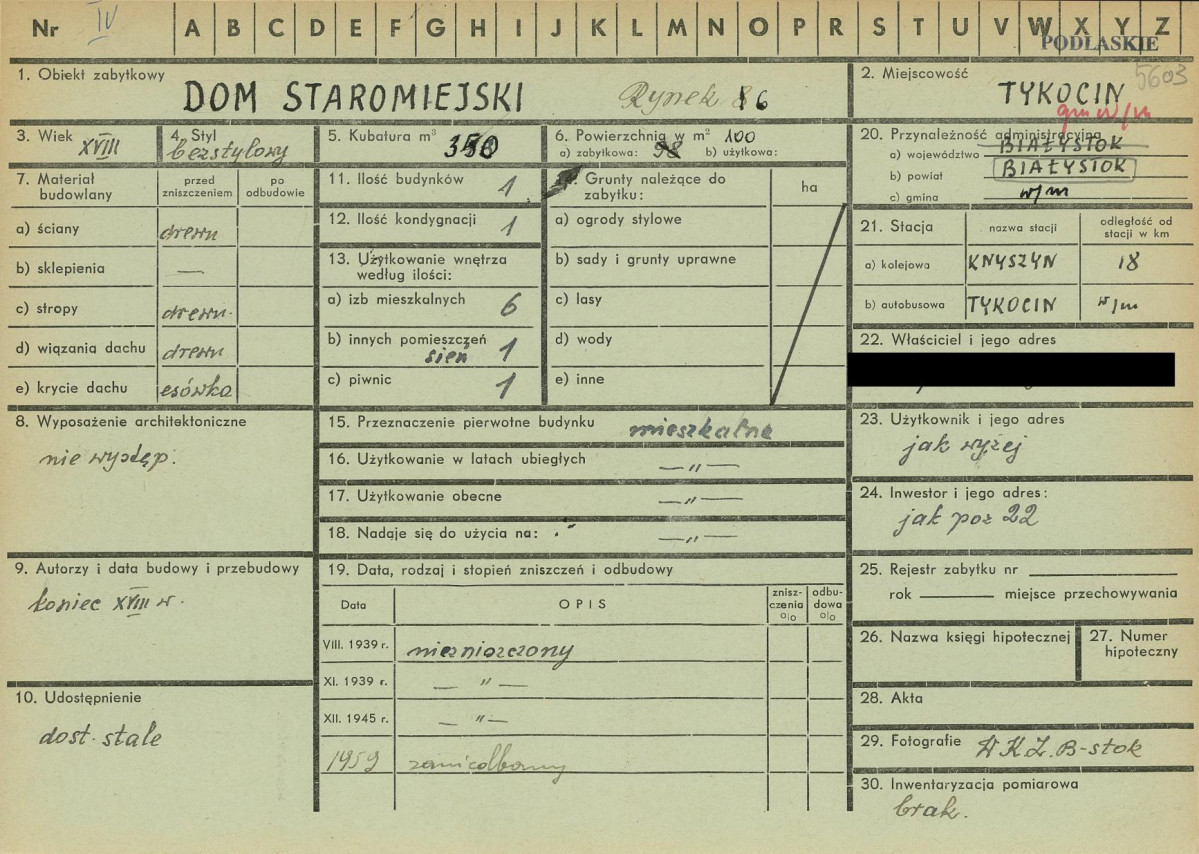 Nr IV A B C D E F G H I J K L M N O P R S T U V W X Y Z
PODLASKIE
1. Obiekt zabytkowy
DOM STAROMIEJSKI Rynek 6
2. Miejscowość 5603
TYKOCIN
gm w/m
3. Wiek XVIII
4. Styl bezstylowy
5. Kubatura m³ 350
6. Powierzchnia w m² 100
a) zabytkowa: 98 b) użytkowa:
7. Materiał budowlany
przed zniszczeniem
po odbudowie
a) ściany drewn
b) sklepienia —
c) stropy drewn.
d) wiązania dachu drewn
e) krycie dachu esówka
8. Wyposażenie architektoniczne
nie występ.
9. Autorzy i data budowy i przebudowy
koniec XVIII w.
10. Udostępnienie
dost. stale
11. Ilość budynków 1
12. Ilość kondygnacji 1
13. Użytkowanie wnętrza
według ilości:
a) izb mieszkalnych 6
b) innych pomieszczeń
sień 1
c) piwnic 1
14. Grunty należące do
zabytku:
ha
a) ogrody stylowe
b) sady i grunty uprawne
c) lasy
d) wody
e) inne
15. Przeznaczenie pierwotne budynku mieszkalne
16. Użytkowanie w latach ubiegłych —„—
17. Użytkowanie obecne —„—
18. Nadaje się do użycia na: —„—
19. Data, rodzaj i stopień zniszczeń i odbudowy
Data OPIS zniszczenia o/o odbudowa o/o
VIII. 1939 r. niezniszczony
XI. 1939 r. —„—
XII. 1945 r. —„—
1959 zaniedbany
20. Przynależność administracyjna
a) województwo BIAŁYSTOK
b) powiat BIAŁYSTOK
c) gmina w/m
21. Stacja
nazwa stacji
odległość od
stacji w km
a) kolejowa KNYSZYN 18
b) autobusowa TYKOCIN w/m
22. Właściciel i jego adres
23. Użytkownik i jego adres
jak wyżej
24. Inwestor i jego adres:
jak poz 22
25. Rejestr zabytku nr
rok miejsce przechowywania
26. Nazwa księgi hipotecznej
27. Numer
hipoteczny
28. Akta
29. Fotografie WKZ. B-stok
30. Inwentaryzacja pomiarowa
brak.